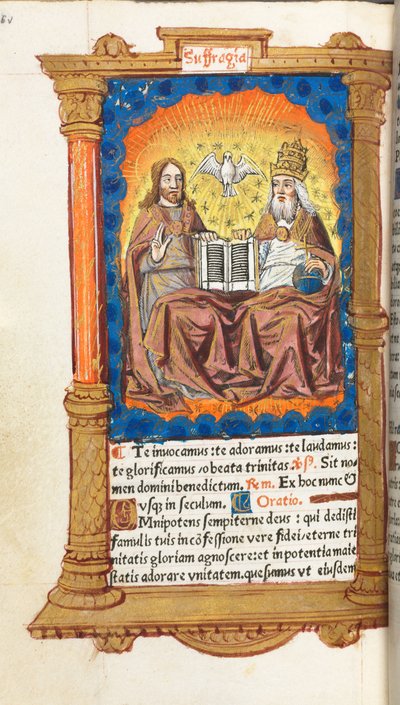 Suffragia
Te invocamus: te adoramus: te laudamus:
te glorificamus o beata trinitas. Sit no
men domini benedictum. Ex hoc nunc
vsqz in seculum. Oratio.
OMnipotens sempiterne deus: qui dedisti
famulis tuis in cõfessione vere fidei eterne tri
nitatis gloriam agnoscere: et in potentia maie
statis adorare vnitatem. quesumus vt eiusdem